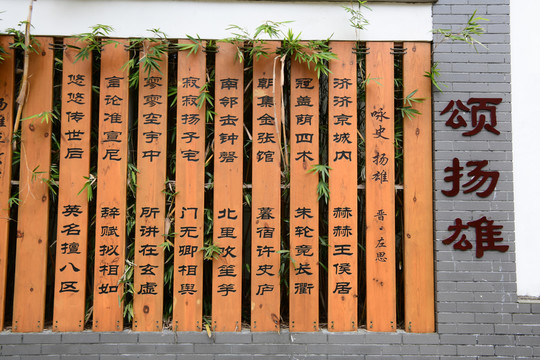 颂扬雄
咏史 扬雄 晋·左思
济济京城内 赫赫王侯居
冠盖荫四术 朱轮竞长衢
朝集金张馆 暮宿许史庐
南邻击钟磬 北里吹笙竽
寂寂扬子宅 门无卿相舆
寥寥空宇中 所讲在玄虚
言论准宣尼 辞赋拟相如
悠悠传世后 英名擅八区